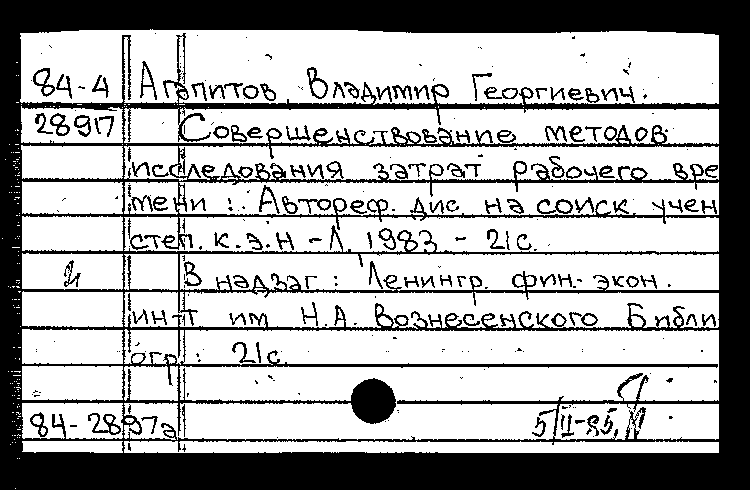 84-4 Агапитов, Владимир Георгиевич.
28917 Совершенствование методов
исследования затрат рабочего вре
мени :. Автореф. дис. на соиск. учен
степ. к.э.н - Л. 1983 - 21с.
В надзаг : Ленингр. фин- экон.
ин-т им Н.А. Вознесенского Библи
огр : 21с.
84-2897а 5/II-85.